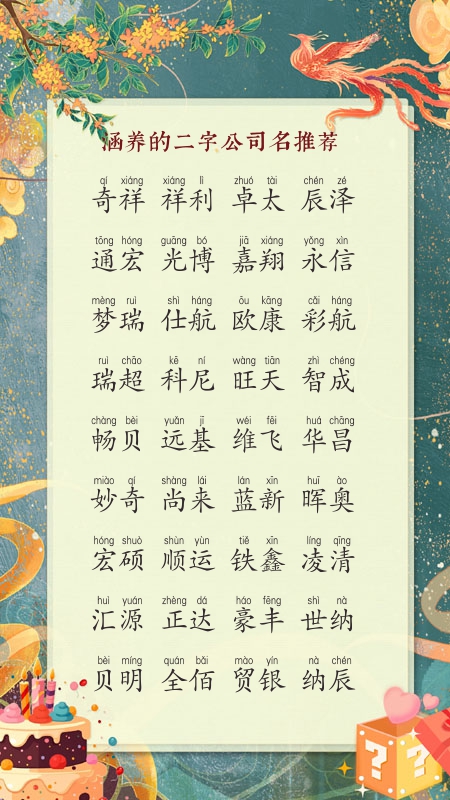 涵养的二字公司名推荐
qí xiáng xiáng lì zhuó tài chén zé
奇祥 祥利 卓太 辰泽
tōng hóng guāng bó jiā xiáng yǒng xìn
通宏 光博 嘉翔 永信
mèng ruì shì háng ōu kāng cǎi háng
梦瑞 仕航 欧康 彩航
ruì chāo kē ní wàng tiān zhì chéng
瑞超 科尼 旺天 智成
chàng bèi yuǎn jī wéi fēi huá chāng
畅贝 远基 维飞 华昌
miào qí shàng lái lán xīn huī ào
妙奇 尚来 蓝新 晖奥
hóng shuò shùn yùn tiě xīn líng qīng
宏硕 顺运 铁鑫 凌清
huì yuán zhèng dá háo fēng shì nà
汇源 正达 豪丰 世纳
bèi míng quán bǎi mào yín nà chén
贝明 全佰 贸银 纳辰
? ?